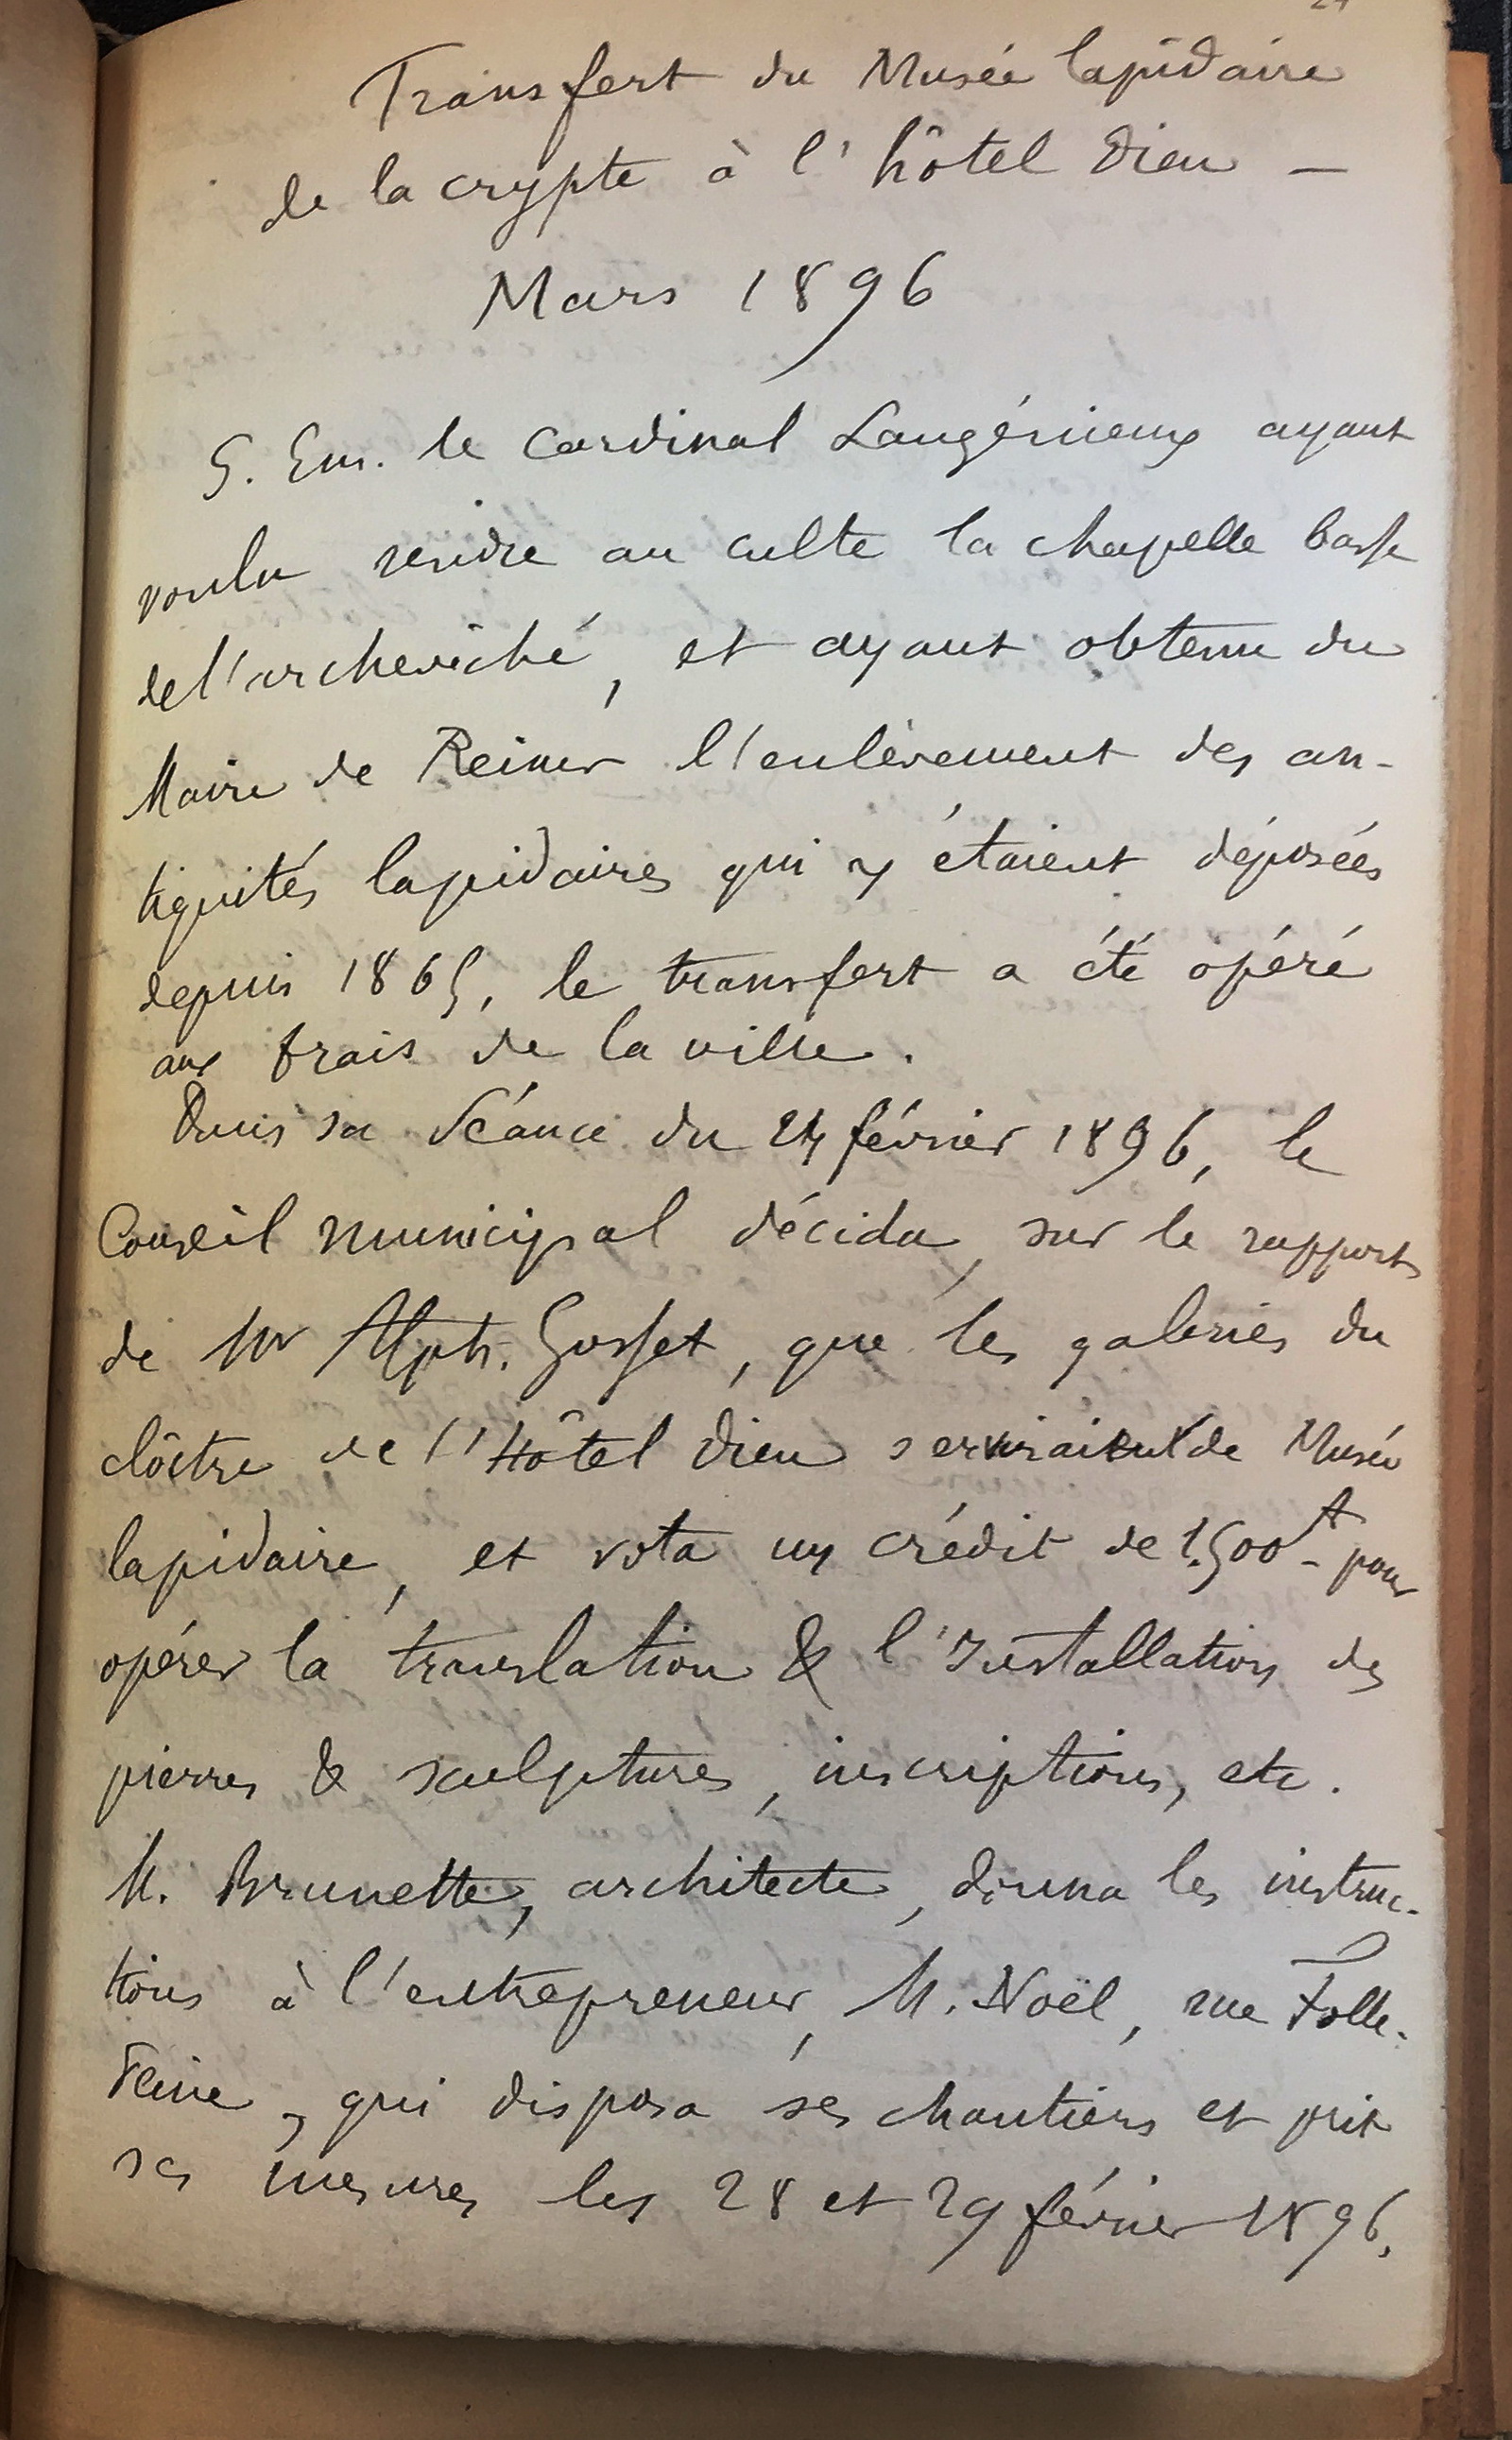 Transfert du Musée lapidaire
de la crypte à l'hôtel Dieu —
Mars 1896
S. Em. le Cardinal Langénieux ayant
voulu rendre au culte la chapelle basse
de l'archevêché, et ayant obtenu du
Maire de Reims l'enlèvement des an-
tiquités lapidaires qui y étaient déposées
depuis 1865, le transfert a été opéré
aux frais de la ville.
Dans sa séance du 24 février 1896, le
Conseil municipal décida, sur le rapport
de Mr Alph. Gosset, que les galeries du
cloître de l'Hôtel Dieu serviraient de Musée
lapidaire, et vota un crédit de 1.500 f - pour
opérer la translation & l'Installation des
pierres & sculptures, inscriptions, etc.
M. Brunette, architecte, donna les instruc-
tions à l'entrepreneur, M. Noël, rue Folle-
Peine, qui disposa ses chantiers et prit
ses mesures les 28 et 29 février 1896.